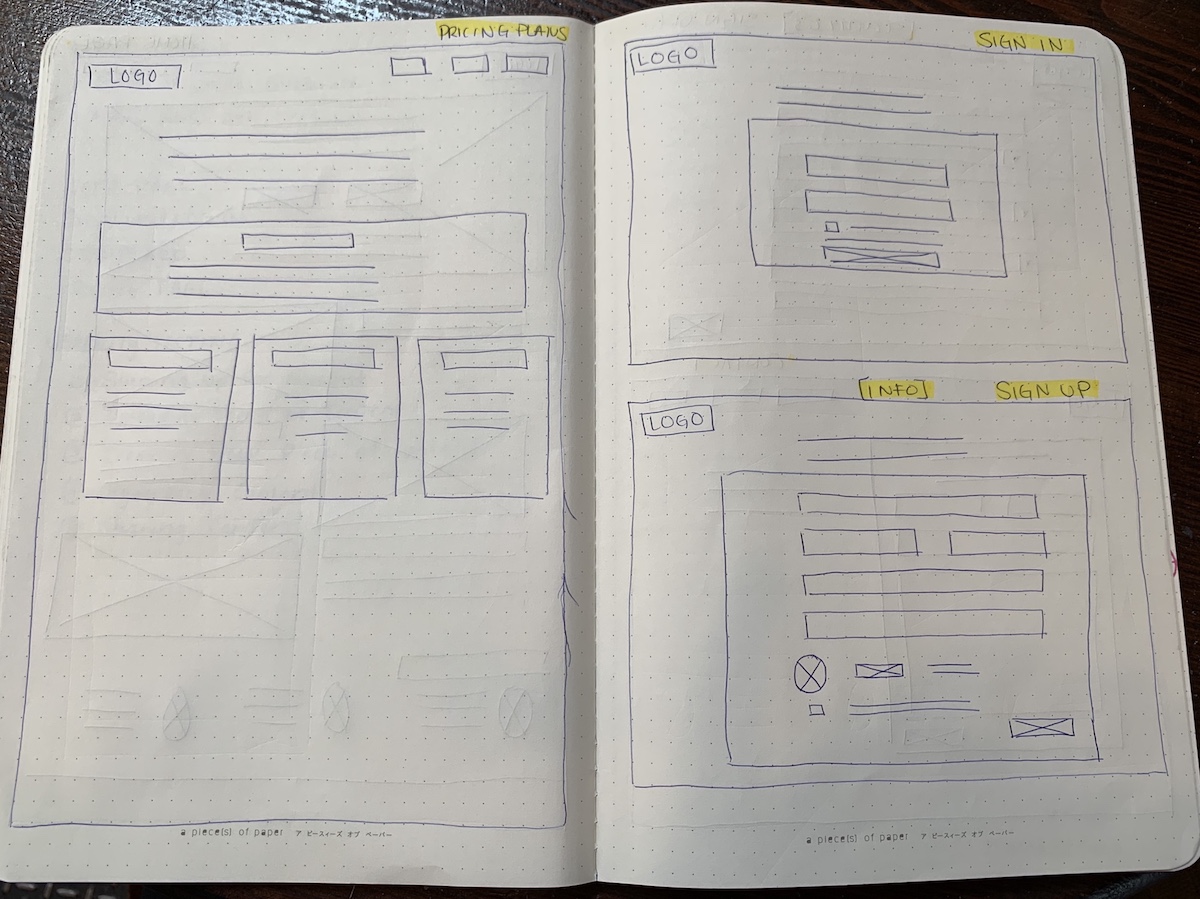 PRICING PLANS
LOGO
a piece(s) of paper ア ピースィーズ オブ ペーパー
SIGN IN
LOGO
[INFO] SIGN UP
LOGO
a piece(s) of paper ア ピースィーズ オブ ペーパー